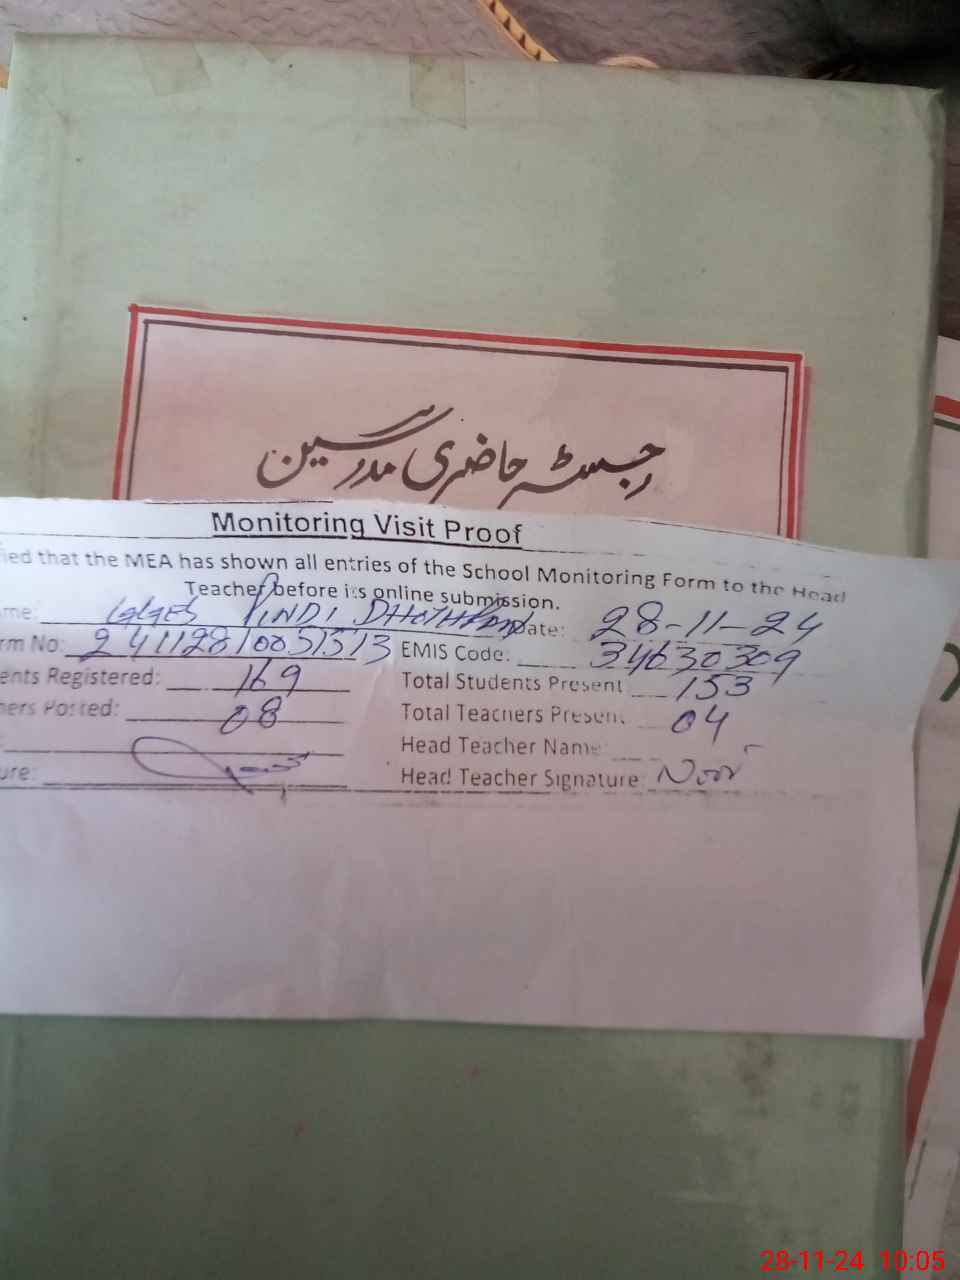 رجسٹر حاضری مدرسین
Monitoring Visit Proof
ied that the MEA has shown all entries of the School Monitoring Form to the Head
Teacher before its online submission.
me: PINDI Date: 28-11-24
rm No: EMIS Code: 34630309
ents Registered: 169 Total Students Present 153
hers Posted: 08 Total Teachers Present 04
Head Teacher Name:
ure: Head Teacher Signature: Noor
28-11-24 10:05